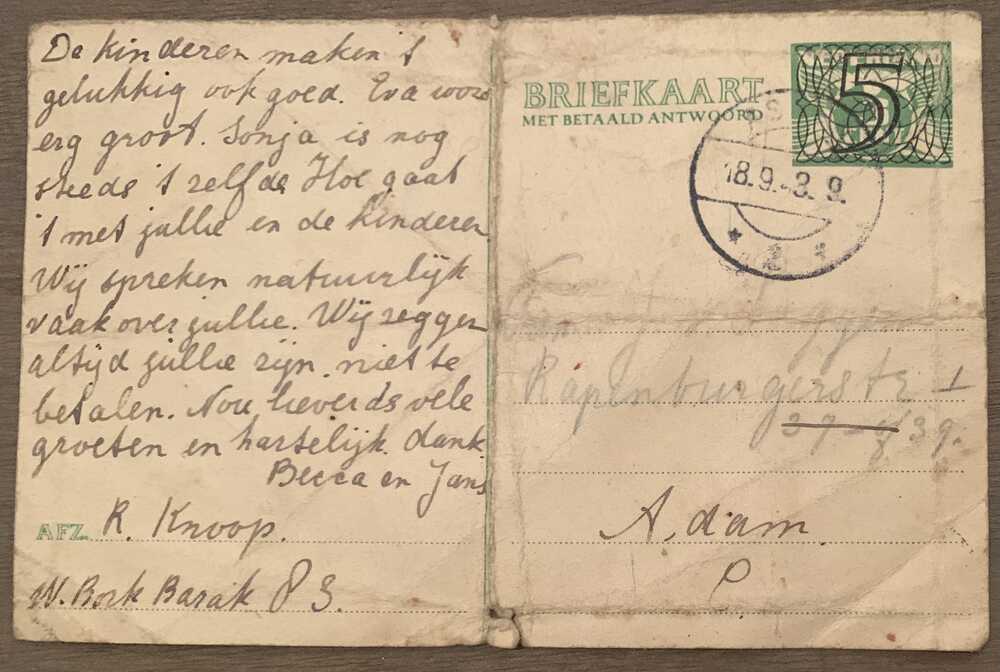 De kinderen maken 't
gelukkig ook goed. Eva word
erg groot. Sonja is nog
steeds 't zelfde Hoe gaat
't met jullie en de kinderen
Wij spreken natuurlijk
vaak over jullie. Wij zeggen
altijd jullie zijn niet te
betalen. Nou lieverds vele
groeten en hartelijk dank
Becca en Jans
AFZ. R. Knoop.
W. Bork Barak 83.
BRIEFKAART
MET BETAALD ANTWOORD
5
18.9.-3. 9.
Rapenburgerstr
39.
A,dam